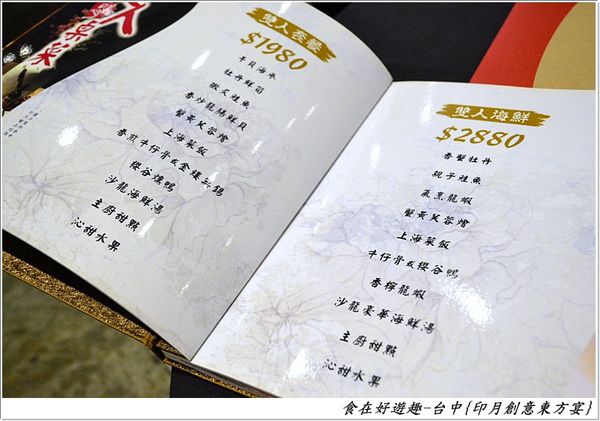 雙人套餐
$1980
干貝海參
牡丹鮮筍
散叉鮭魚
香炒龍腸鮮貝
蟹黃芙蓉燴
上海菜飯
香煎牛仔骨&金縷三鍚
櫻谷燻鴨
沙龍海鮮湯
主廚甜點
沁甜水果
雙人海鮮
$2880
香蟹牡丹
親子鮭魚
蒸烹龍蝦
蟹黃芙蓉燴
上海菜飯
牛仔骨&櫻谷鴨
香檸龍蝦
沙龍豪華海鮮湯
主廚甜點
沁甜水果
食在好遊趣-台中{印月創意東方宴}